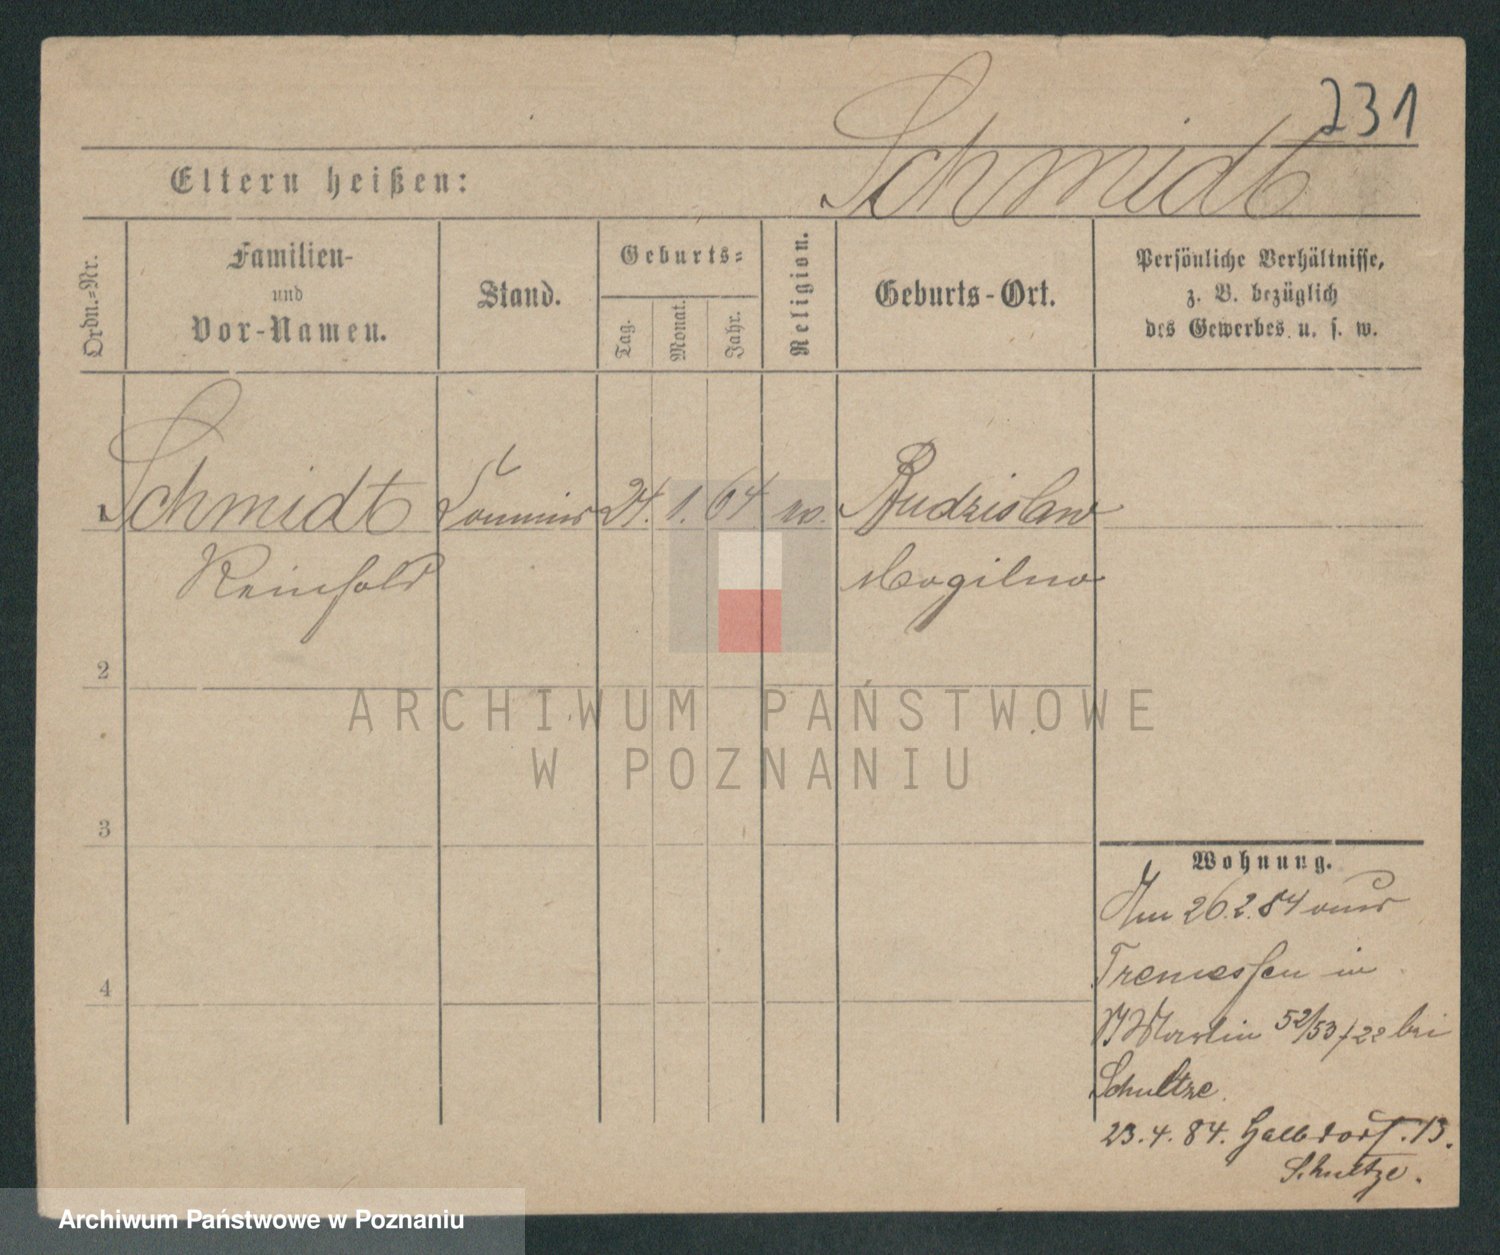 231
Schmidt
Eltern heißen:
Ordn.=Nr.
Familien-
und
Vor-Namen.
Stand.
Geburts=
Tag.
Monat.
Jahr.
Religion.
Geburts-Ort.
Persönliche Verhältnisse,
z. B. bezüglich
des Gewerbes u. s. w.
1 Schmidt 24. 1. 64 ev. Budzislaw
Reinhold Mogilno
2
ARCHIWUM PAŃSTWOWE
W POZNANIU
3
4
Wohnung.
Am 26.2.84 aus
Tremessen in
Martin 52/53 /22 bei
Schultze.
23.4.84. Halbdorf. 13.
Schultze.
Archiwum Państwowe w Poznaniu